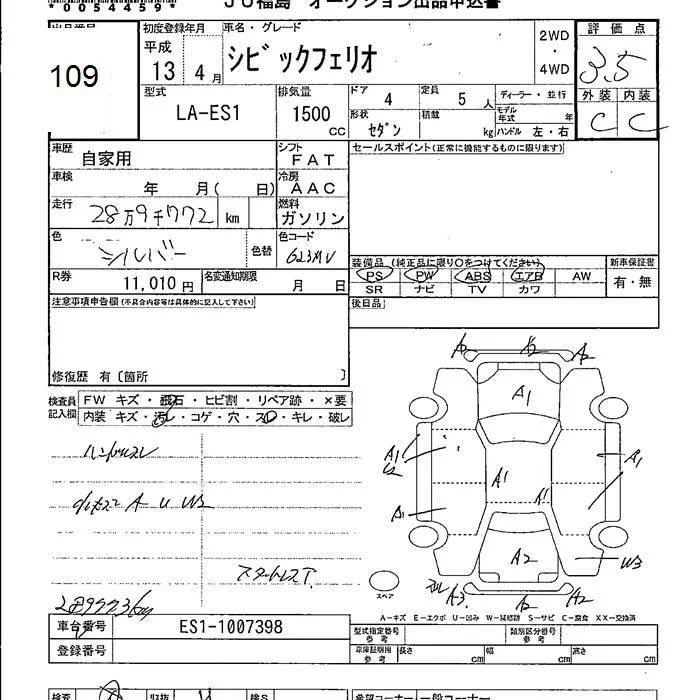 JU福島 オークション出品申込書
* 0054459 *
初度登録年月 車名・グレード 2WD ・ 4WD 評価点
109 平成 13 4月 シビックフェリオ 3.5
外装 内装
C C
型式 排気量 ドア 4 定員 5人 ディーラー・並行
LA-ES1 1500 cc 形状 セダン 積載 kg モデル年式 年
ハンドル 左・右
車歴 自家用 シフト FAT セールスポイント(正常に機能するものに限ります)
車検 年 月( 日) 冷房 AAC
走行 28万9千772 km 燃料 ガソリン
色 シルバー 色替 色コード 623MV
装備品(純正品に限り○をつけてください) 新車保証書
PS PW ABS エアB AW 有・無
SR ナビ TV カワ
R券 11,010円 名変通知期限 月 日 後日品
注意事項申告欄(不具合内容等は具体的に記入して下さい)
修復歴 有〔箇所 〕
検査員記入欄 FW キズ・飛石・ヒビ割・リペア跡・×要
内装 キズ・汚れ・コゲ・穴・スレ・キレ・破レ
ハンドルスレ
A U W2
スタットレスT
A2 A2 A2
A1
A1 U2 A1
A1 A1
A1
A2 W3
A3 A2 A2
スペア
A-キズ E-エクボ U-凹み W-補修跡 S-サビ C-腐食 XX-交換済
289773km
車台番号 ES1-1007398 型式指定番号 参考 類別区分番号 参考
登録番号 車庫証明用 参考 長さ cm 幅 cm 高さ cm
検査 下残 検S 希望コーナー 一般コーナー